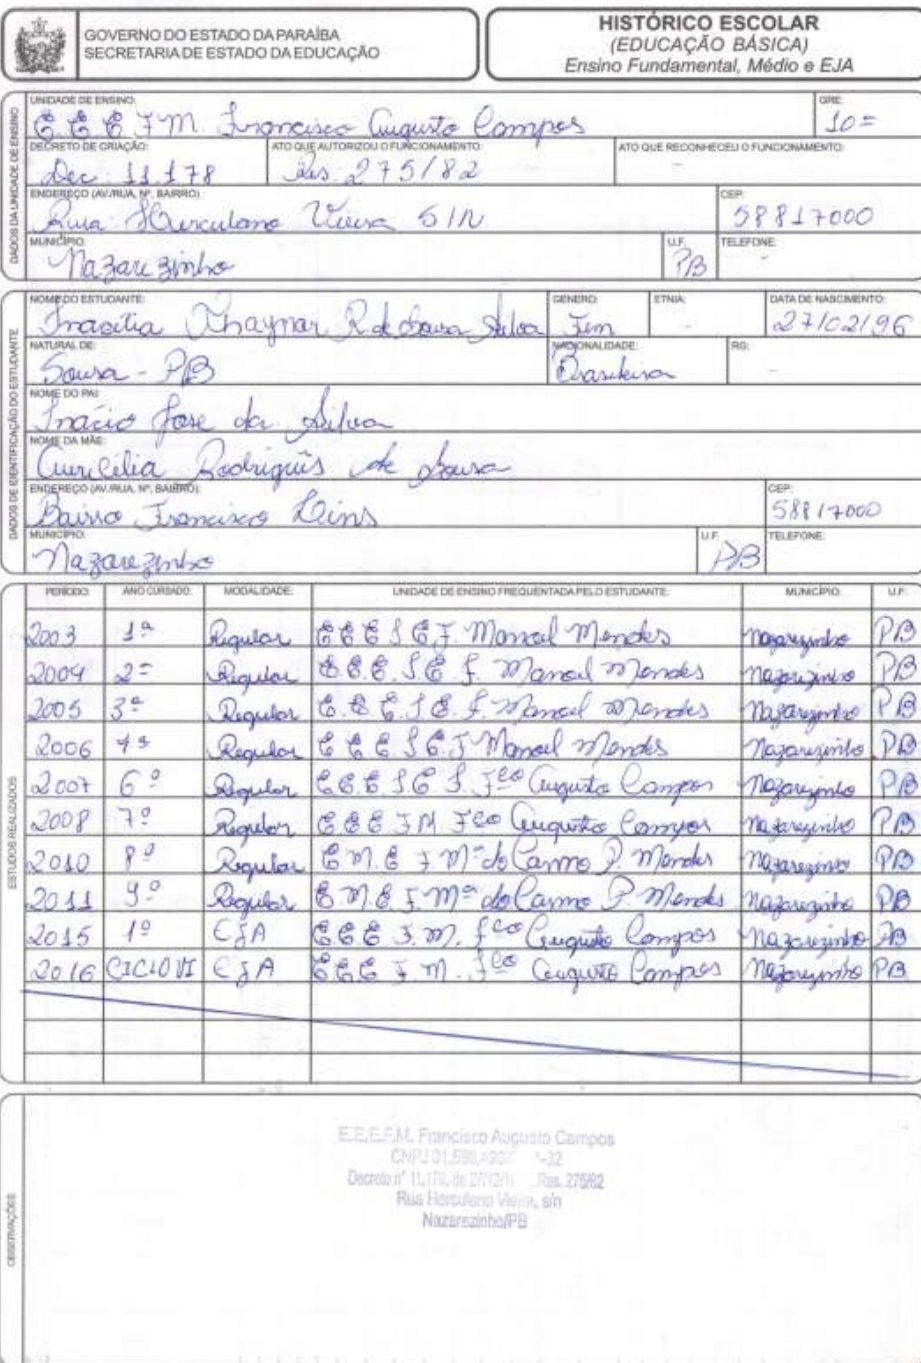 GOVERNO DO ESTADO DA PARAÍBA
SECRETARIA DE ESTADO DA EDUCAÇÃO
HISTÓRICO ESCOLAR
(EDUCAÇÃO BÁSICA)
Ensino Fundamental, Médio e EJA
DADOS DA UNIDADE DE ENSINO
UNIDADE DE ENSINO: GRE:
E.E.E.F.M. Francisco Augusto Campos 10ª
DECRETO DE CRIAÇÃO: ATO QUE AUTORIZOU O FUNCIONAMENTO: ATO QUE RECONHECEU O FUNCIONAMENTO:
Dec. 11.178 Res. 275/82 -
ENDEREÇO (AV./RUA, Nº, BAIRRO) CEP:
Rua: Herculano Vieira S/N 58817000
MUNICÍPIO: U.F. TELEFONE:
Nazarezinho PB -
DADOS DE IDENTIFICAÇÃO DO ESTUDANTE
NOME DO ESTUDANTE: GENERO: ETNIA: DATA DE NASCIMENTO:
Thaynar R de Sousa Silva Fem - 27/02/96
NATURAL DE: NACIONALIDADE: RG:
Sousa - PB Brasileira -
NOME DO PAI:
Inácio José da Silva
NOME DA MÃE:
Rodrigues de Sousa
ENDEREÇO (AV./RUA, Nº, BAIRRO): CEP:
Bairro Francisco Lins 58817000
MUNICÍPIO: U.F. TELEFONE:
Nazarezinho PB
ESTUDOS REALIZADOS
PERÍODO: ANO CURSADO: MODALIDADE: UNIDADE DE ENSINO FREQUENTADA PELO ESTUDANTE: MUNICÍPIO: U.F.
2003 1ª Regular E E E I E F. Manoel Mendes Nazarezinho PB
2004 2ª Regular E.E.E. I E F. Manoel Mendes Nazarezinho PB
2005 3ª Regular E.E.E. I E. F. Manoel Mendes Nazarezinho PB
2006 4ª Regular E E E I E. F Manoel Mendes Nazarezinho PB
2007 6º Regular E E E I E F. Fco Augusto Campos Nazarezinho PB
2008 7º Regular E E E F M Fco Augusto Campos Nazarezinho PB
2010 8º Regular E M. E F Mª do Carmo P. Mendes Nazarezinho PB
2011 9º Regular E M. E. F. Mª do Carmo P. Mendes Nazarezinho PB
2015 1º EJA E E E F. M. Fco Augusto Campos Nazarezinho PB
2016 CICLO VI EJA E E E F. M. Fco Augusto Campos Nazarezinho PB
OBSERVAÇÕES
E.E.E.F.M. Francisco Augusto Campos
CNPJ 01.598. -32
Decreto nº 11.178, de Res. 275/82
Rua Herculano Vieira, s/n
Nazarezinho/PB